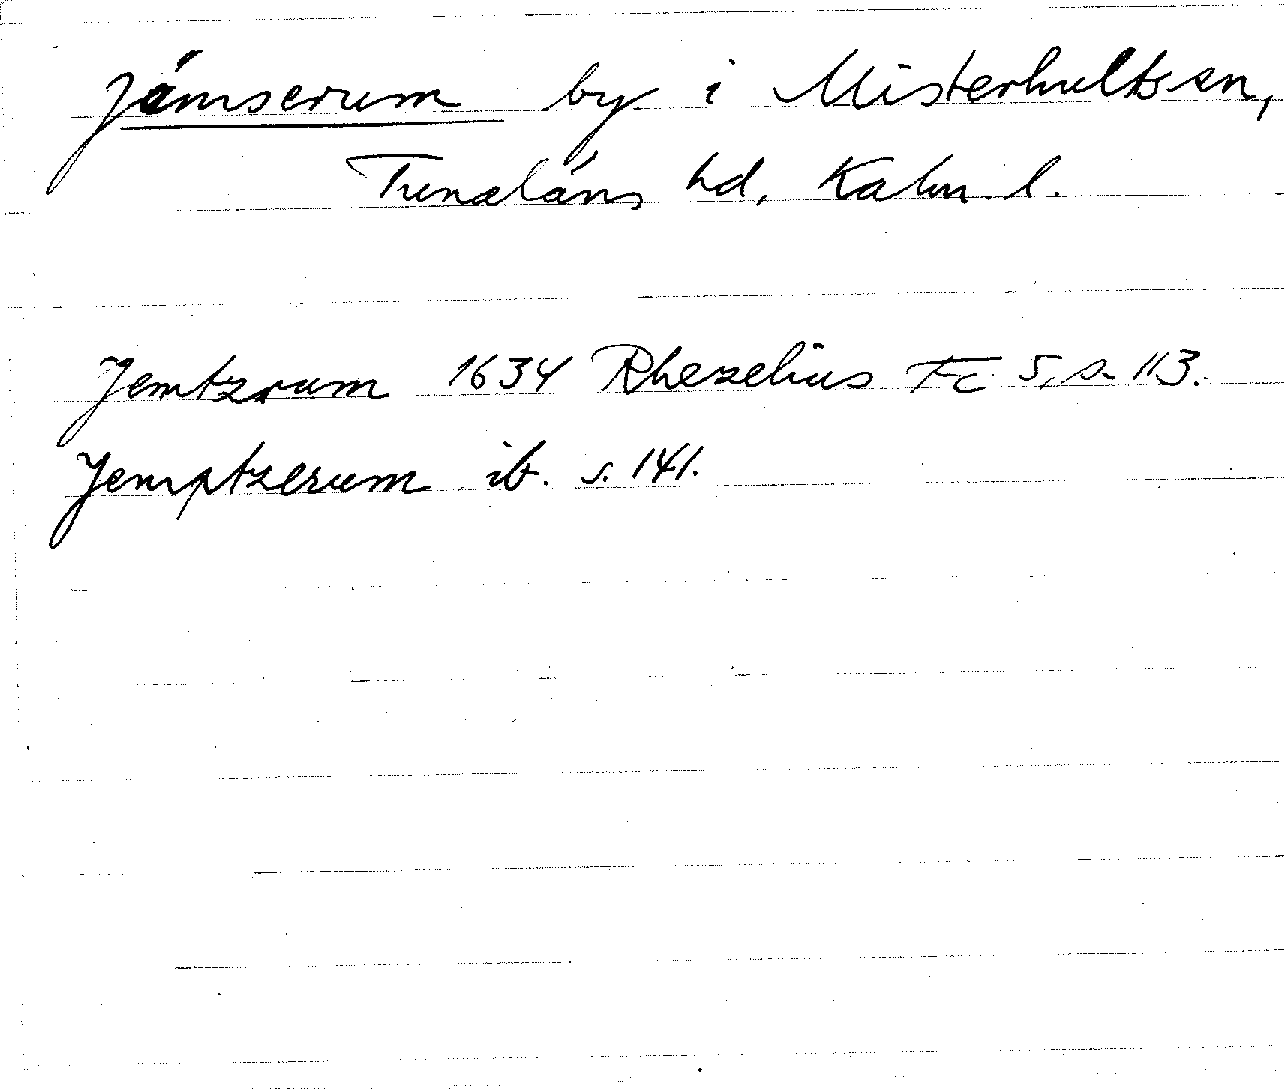 Jämserum by i Misterhults sn,
Tunaläns hd, Kalm. l.
Jemtzrum 1634 Rhezelius Fc 5, s. 113.
Jemptzerum ib. s. 141.